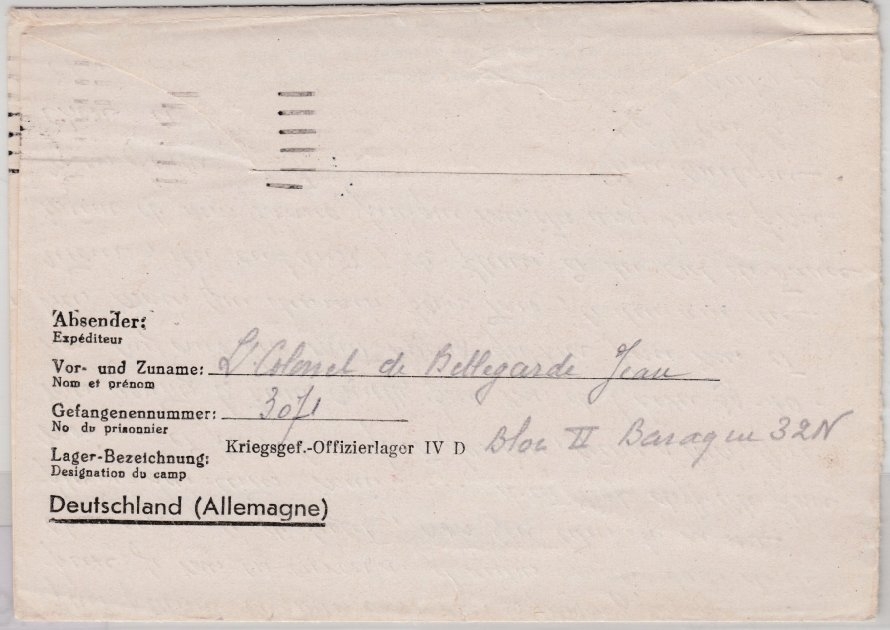 Absender:
Expéditeur
Vor- und Zuname: Lt Colonel de Bellegarde Jean
Nom et prénom
Gefangenennummer: 3071
No du prisonnier
Lager-Bezeichnung: Kriegsgef.-Offizierlager IV D Bloc II Baraque 32N
Designation du camp
Deutschland (Allemagne)